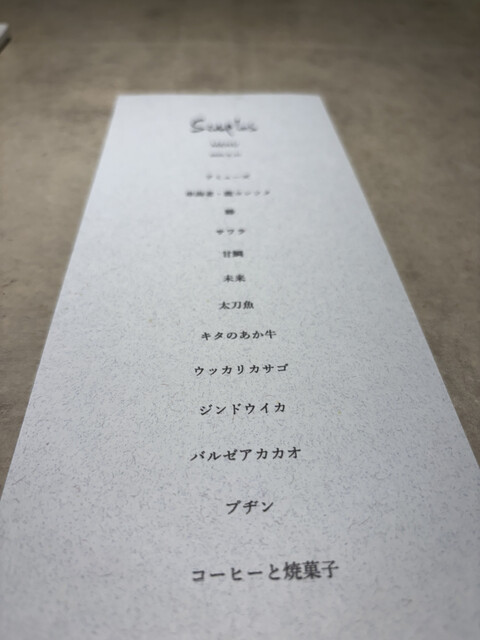 アミューズ
サワラ
甘鯛
未来
太刀魚
キタのあか牛
ウッカリカサゴ
ジンドウイカ
バルゼアカカオ
プヂン
コーヒーと焼菓子